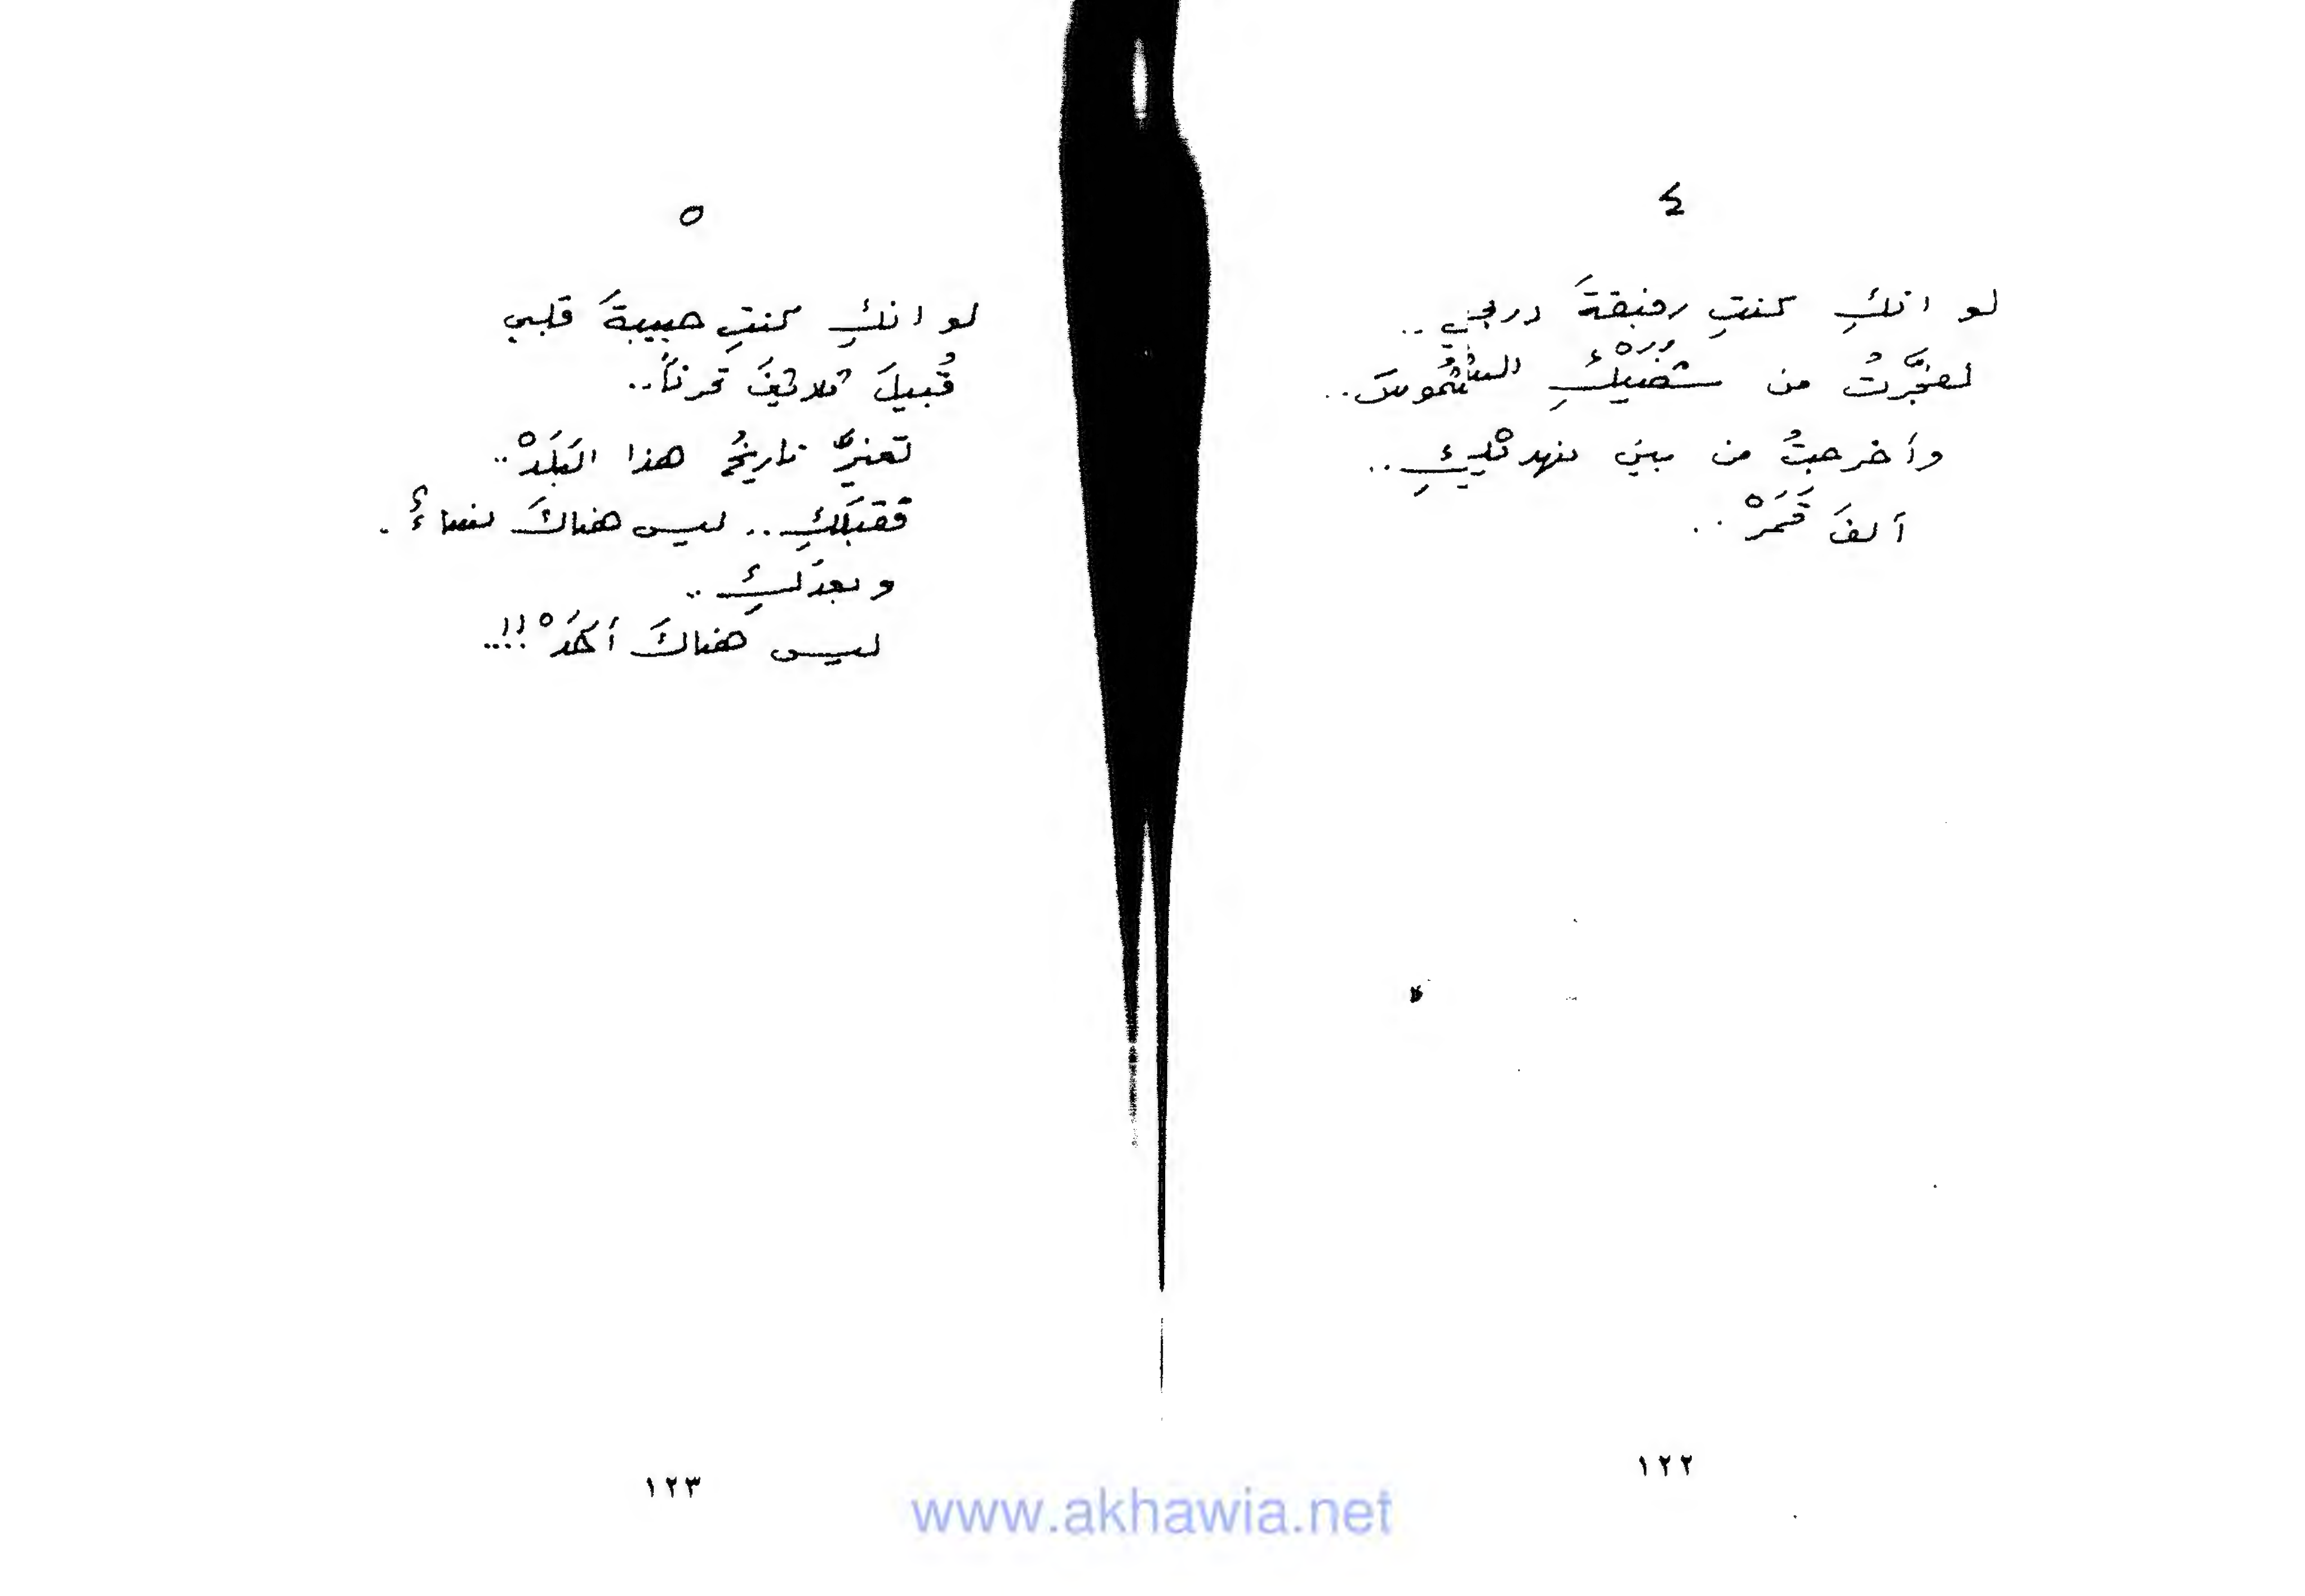 ٤
لو انكِ كنتِ رفيقةَ دربي..
لفجَّرتُ من شفتيكِ الشموسَ..
وأخرجتُ من بينِ نهديكِ..
ألفَ قَمَرْ..
١٢٢
٥
لو انكِ كنتِ حبيبةَ قلبي
قُبيلَ ثلاثينَ قرناً..
لتغيَّر تاريخُ هذا البَلَدْ..
فقبلَكِ.. ليس هناكَ نساءٌ.
وبعدَكِ..
ليس هناكَ أَحَدْ!!..
١٢٣
www.akhawia.net